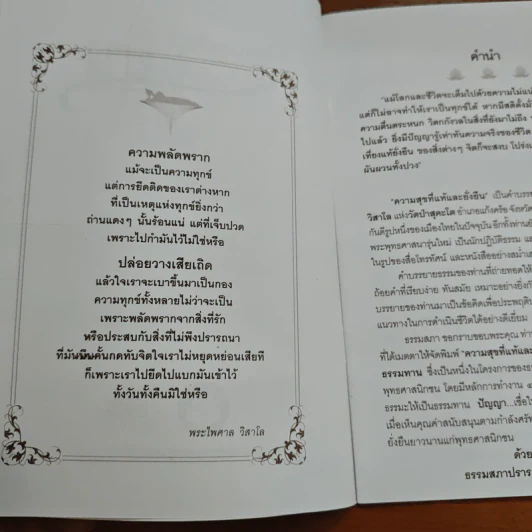 ความพลัดพราก
แม้จะเป็นความทุกข์
แต่การยึดติดของเราต่างหาก
ที่เป็นเหตุแห่งทุกข์ยิ่งกว่า
ถ่านแดงๆ นั้นร้อนแน่ แต่ที่เจ็บปวด
เพราะไปกำมันไว้ไม่ใช่หรือ
ปล่อยวางเสียเถิด
แล้วใจเราจะเบาขึ้นมาเป็นกอง
ความทุกข์ทั้งหลายไม่ว่าจะเป็น
เพราะพลัดพรากจากสิ่งที่รัก
หรือประสบกับสิ่งที่ไม่พึงปรารถนา
ที่มันบีบคั้นกดทับจิตใจเราไม่หยุดหย่อนเสียที
ก็เพราะเราไปยึดไปแบกมันเข้าไว้
ทั้งวันทั้งคืนมิใช่หรือ
พระไพศาล วิสาโล
คำนำ
"แม้โลกและชีวิตจะเต็มไปด้วยความไม่แน่
แต่ก็ไม่อาจทำให้เราเป็นทุกข์ได้ หากมีสติตั้งมั่
ความตื่นตระหนก วิตกกังวลในสิ่งที่ยังมาไม่ถึง
ไปแล้ว ยิ่งมีปัญญารู้เท่าทันความจริงของชีวิต
เที่ยงแท้ยั่งยืน ของสิ่งต่างๆ จิตก็จะสงบ โปร่งเ
ผันผวนทั้งปวง"
"ความสุขที่แท้และยั่งยืน" เป็นคำบรร
วิสาโล แห่งวัดป่าสุคะโต อำเภอแก้งคร้อ จังหวัด
กันดีรูปหนึ่งของเมืองไทยในปัจจุบัน อีกทั้งท่านยั
พระพุทธศาสนารุ่นใหม่ เป็นนักปฏิบัติธรรม แ
ในรูปของสื่อโทรทัศน์ และหนังสืออย่างสม่ำเส
คำบรรยายธรรมของท่านที่ถ่ายทอดให้
ถ้อยคำที่เรียบง่าย ทันสมัย เหมาะอย่างยิ่งกั
บรรยายของท่านมาเป็นข้อคิดเพื่อประพฤติป
แนวทางในการดำเนินชีวิตได้อย่างดีเยี่ยม
ธรรมสภา ขอกราบขอบพระคุณ ท่าน
ที่ได้เมตตาให้จัดพิมพ์ "ความสุขที่แท้และ
ธรรมทาน ซึ่งเป็นหนึ่งในโครงการของธร
พุทธศาสนิกชน โดยมีหลักการทำงาน ๔
ธรรมะให้เป็นธรรมทาน ปัญญา...เชื่อใ
เมื่อเห็นคุณค่าสนับสนุนตามกำลังศรัท
ยั่งยืนยาวนานแก่พุทธศาสนิกชน
ด้วย
ธรรมสภาปราร